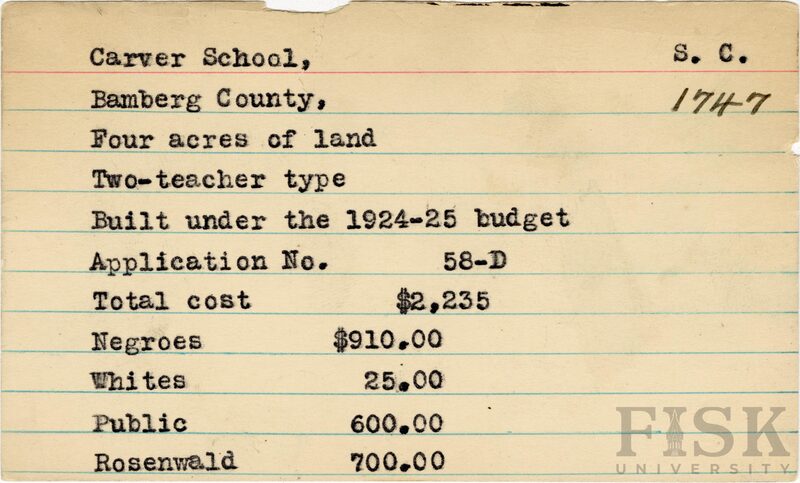 Carver School, S. C.
Bamberg County, 1747
Four acres of land
Two-teacher type
Built under the 1924-25 budget
Application No. 58-D
Total cost $2,235
Negroes $910.00
Whites 25.00
Public 600.00
Rosenwald 700.00
FISK
UNIVERSITY